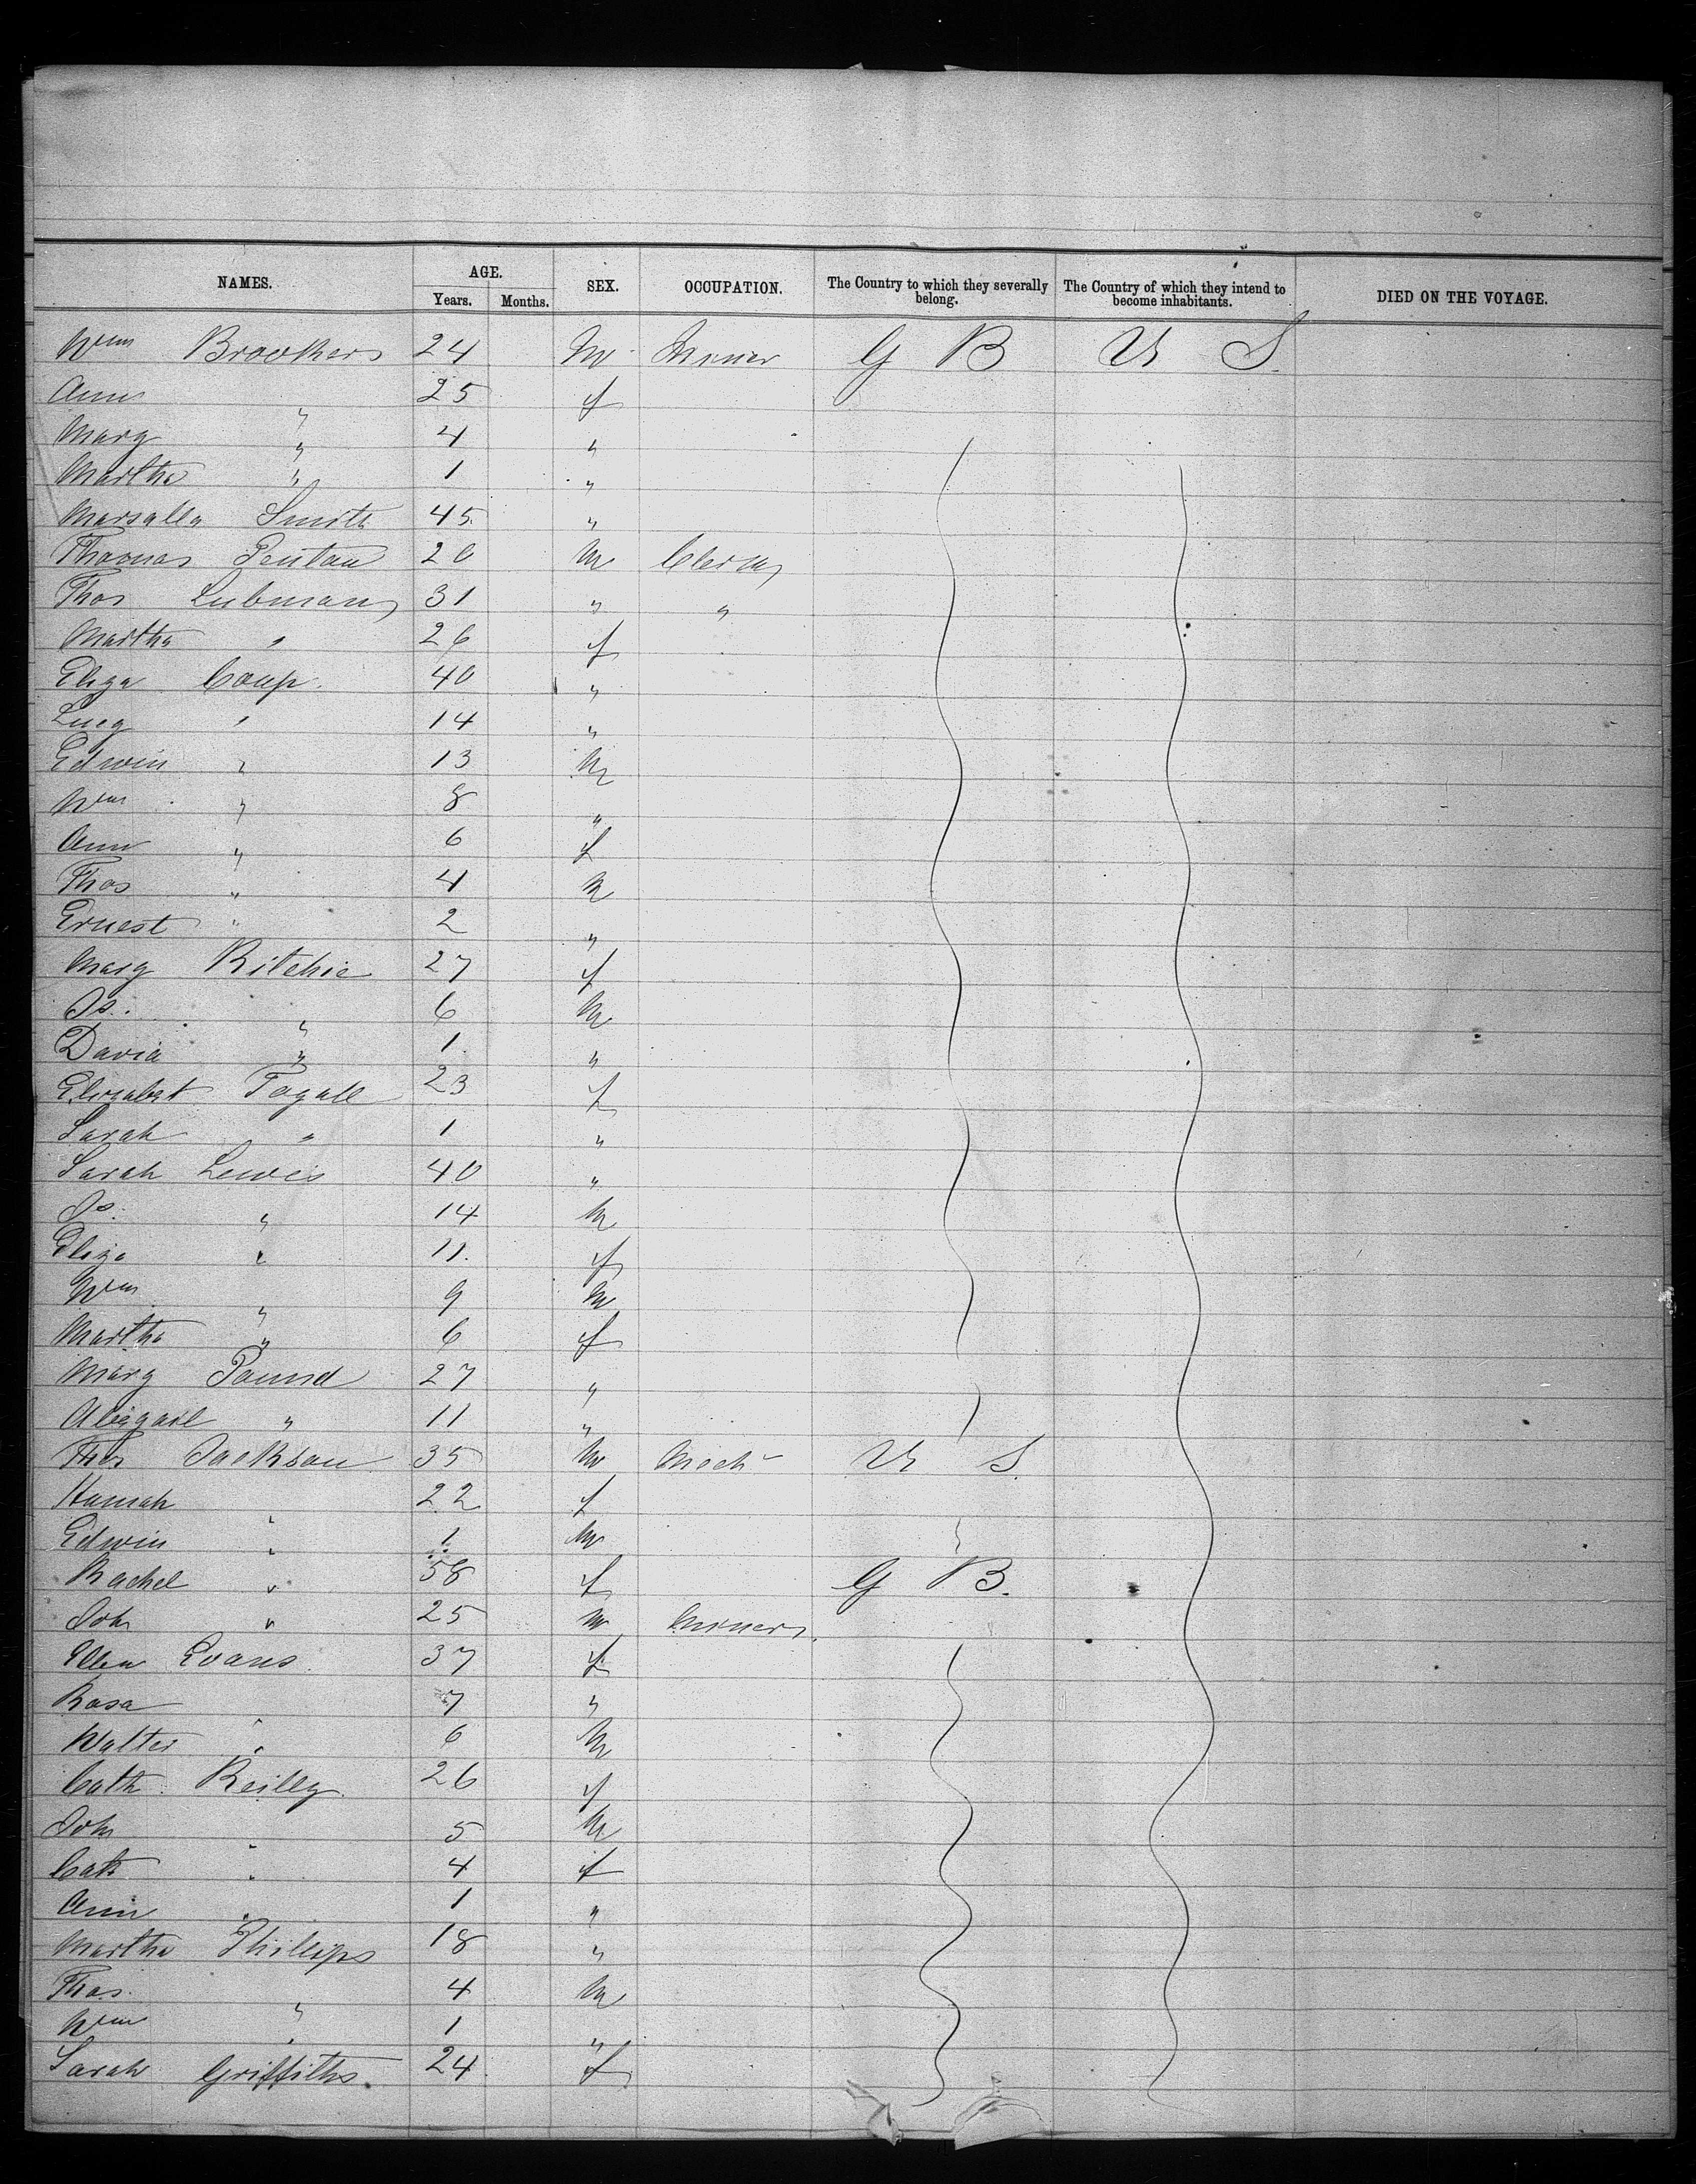 NAMES. AGE. SEX. OCCUPATION. The Country to which they severally belong. The Country of which they intend to become inhabitants. DIED ON THE VOYAGE.
Years. Months.
Wm Brookers 24 M Miner G B U S.
Ann " 25 f
Mary " 4 "
Martha " 1 "
Marsalla Smith 45 "
Thomas Pentau 20 M Clerk
Thos Lubman 31 " "
Martha " 26 f
Eliza Coup. 40 "
Lucy " 14 "
Edwin " 13 M
Wm " 8 "
Ann " 6 f
Thos " 4 M
Ernest " 2 "
Mary Ritchie 27 f
Js. " 6 M
David " 1 "
Elizabet Fogall 23 f
Sarah " 1 "
Sarah Lewis 40 "
Js. " 14 M
Eliza " 11. f
Wm " 9 M
Martha " 6 f
Mary Pound 27 "
Abigail " 11 "
Thos Jackson 35 M Mech U S.
Hannah " 22 f
Edwin " 1 M
Rachel " 58 f G B.
Joh " 25 M Miner
Ellen Evans 37 f
Rosa " 7 "
Walter " 6 M
Cath. Reilly 26 f
Joh " 5 M
Cath " 4 f
Ann " 1 "
Martha Phillips 18 "
Thos. " 4 M
Wm " 1 "
Sarah Griffiths. 24 f